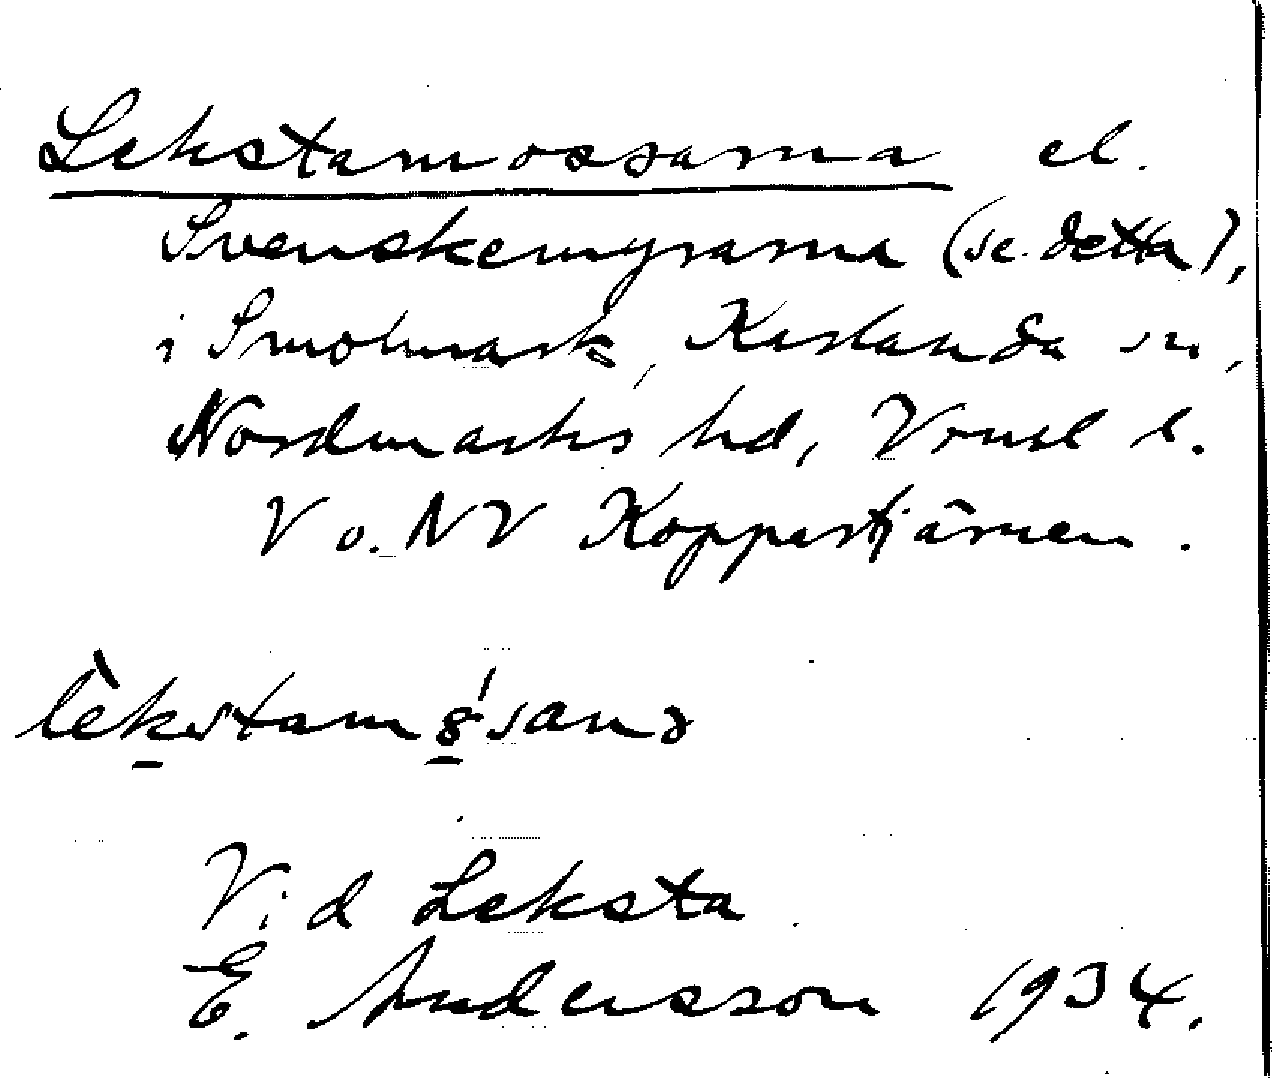 Lekstamossarna el.
Svenskemyrarna (se detta),
i Smolmark, Karlanda sn,
Nordmarks hd, Vrml l.
V o. NV Koppertjärnen.
Vid Leksta
E. Andersson 1934.